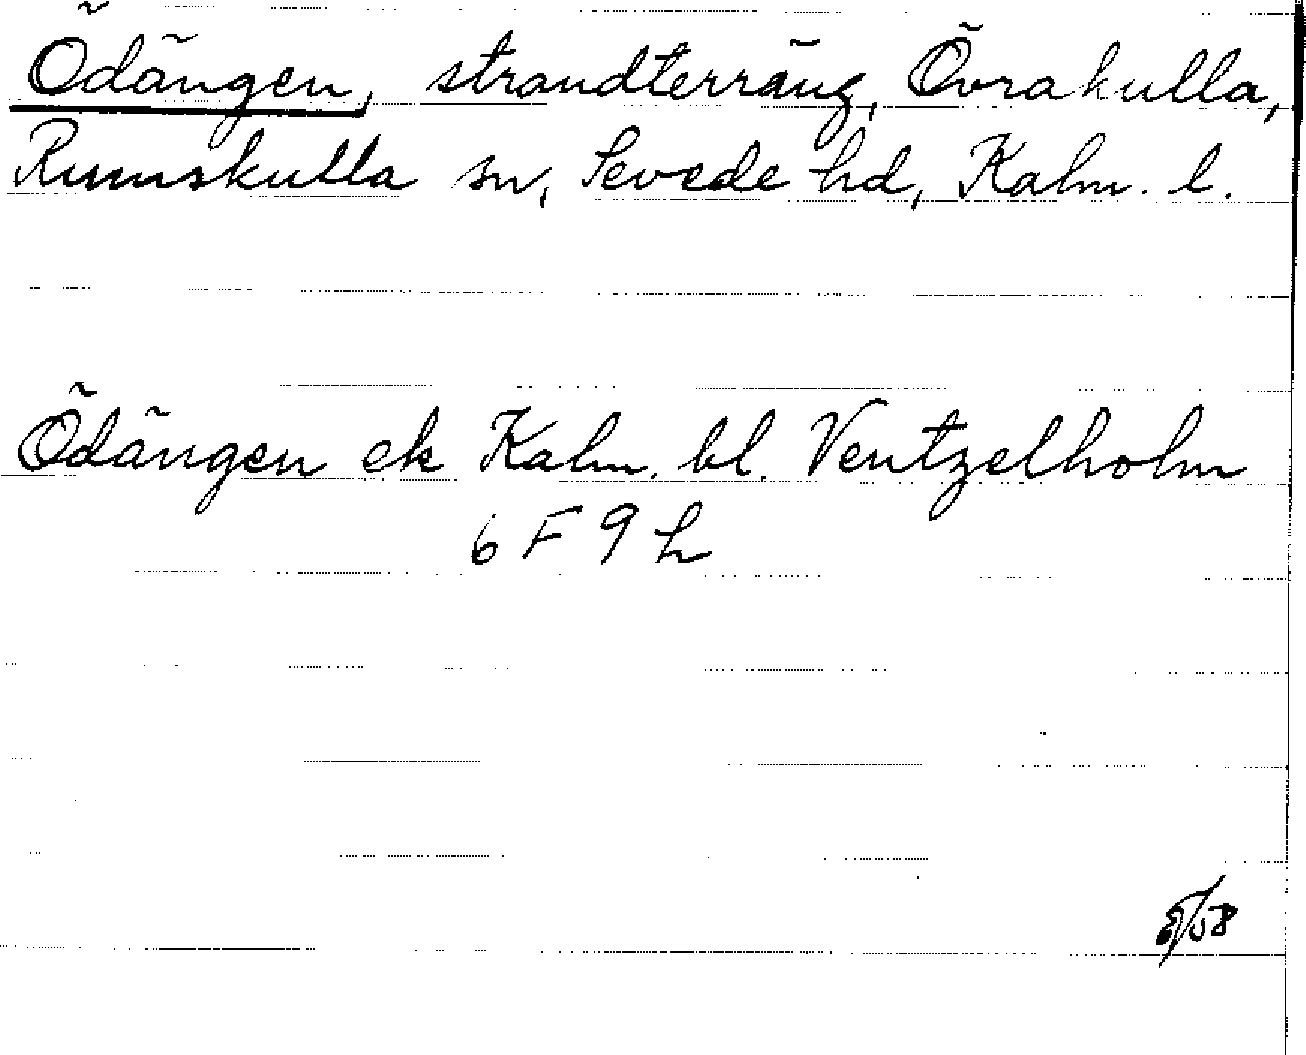 Ödängen, strandterräng, Övrakulla,
Rumskulla sn, Sevede hd, Kalm. l.
Ödängen ek Kalm. bl. Ventzelholm
6 F 9 h